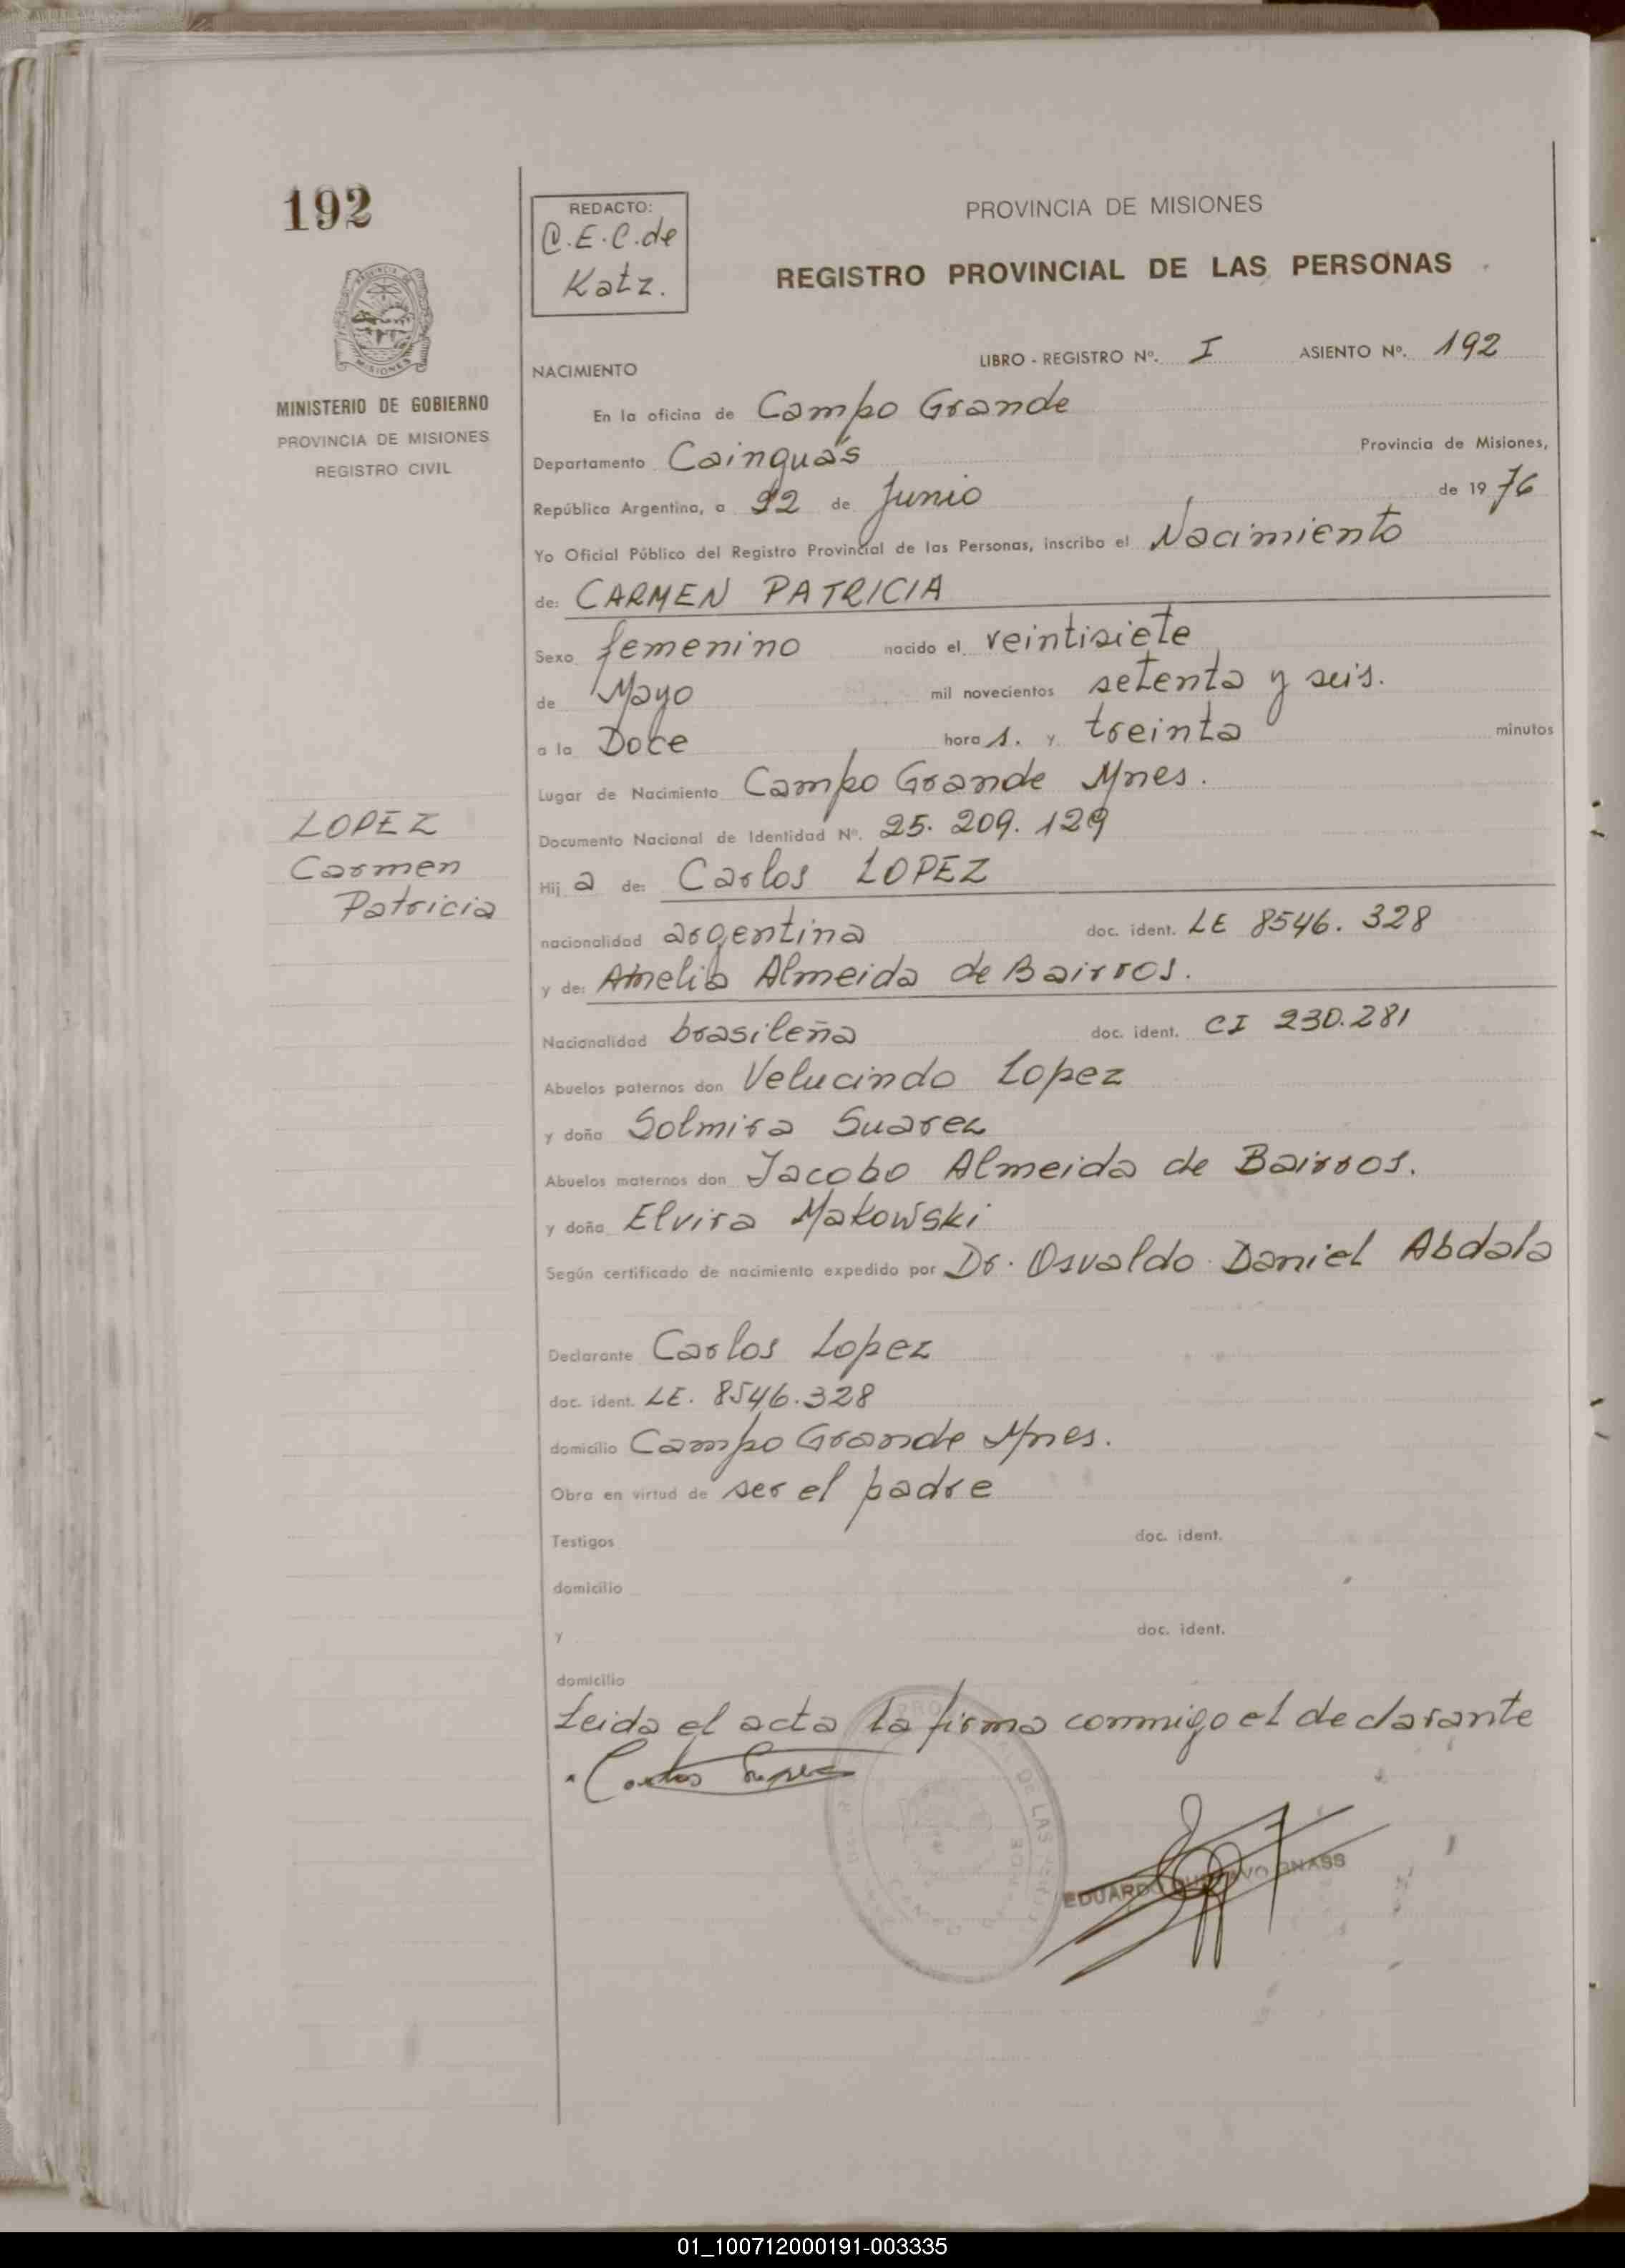 192
MINISTERIO DE GOBIERNO
PROVINCIA DE MISIONES
REGISTRO CIVIL
LOPEZ
Carmen
Patricia
REDACTO:
C.E.C. de
Katz.
PROVINCIA DE MISIONES
REGISTRO PROVINCIAL DE LAS PERSONAS
LIBRO - REGISTRO Nº. I ASIENTO Nº. 192
NACIMIENTO
En la oficina de Campo Grande
Departamento Cainguás Provincia de Misiones,
República Argentina, a 22 de Junio de 1976
Yo Oficial Público del Registro Provincial de las Personas, inscribo el Nacimiento
de: CARMEN PATRICIA
Sexo femenino nacido el veintisiete
de Mayo mil novecientos setenta y seis.
a la Doce hora s. y treinta minutos
Lugar de Nacimiento Campo Grande Mnes.
Documento Nacional de Identidad Nº. 25.209.129
Hij a de: Carlos LOPEZ
nacionalidad argentina doc. ident. LE 8546.328
y de: Amelia Almeida de Bairros.
Nacionalidad brasileña doc. ident. CI 230.281
Abuelos paternos don Velucindo Lopez
y doña Solmira Suarez
Abuelos maternos don Jacobo Almeida de Bairros.
y doña Elvira Makowski
Según certificado de nacimiento expedido por Dr. Osvaldo Daniel Abdala
Declarante Carlos Lopez
doc. ident. LE. 8546.328
domicilio Campo Grande Mnes.
Obra en virtud de ser el padre
Testigos doc. ident.
domicilio
y doc. ident.
domicilio
Leida el acta la firma conmigo el declarante
Carlos Lopez
EDUARDO GUSTAVO GNASS
01_100712000191-003335